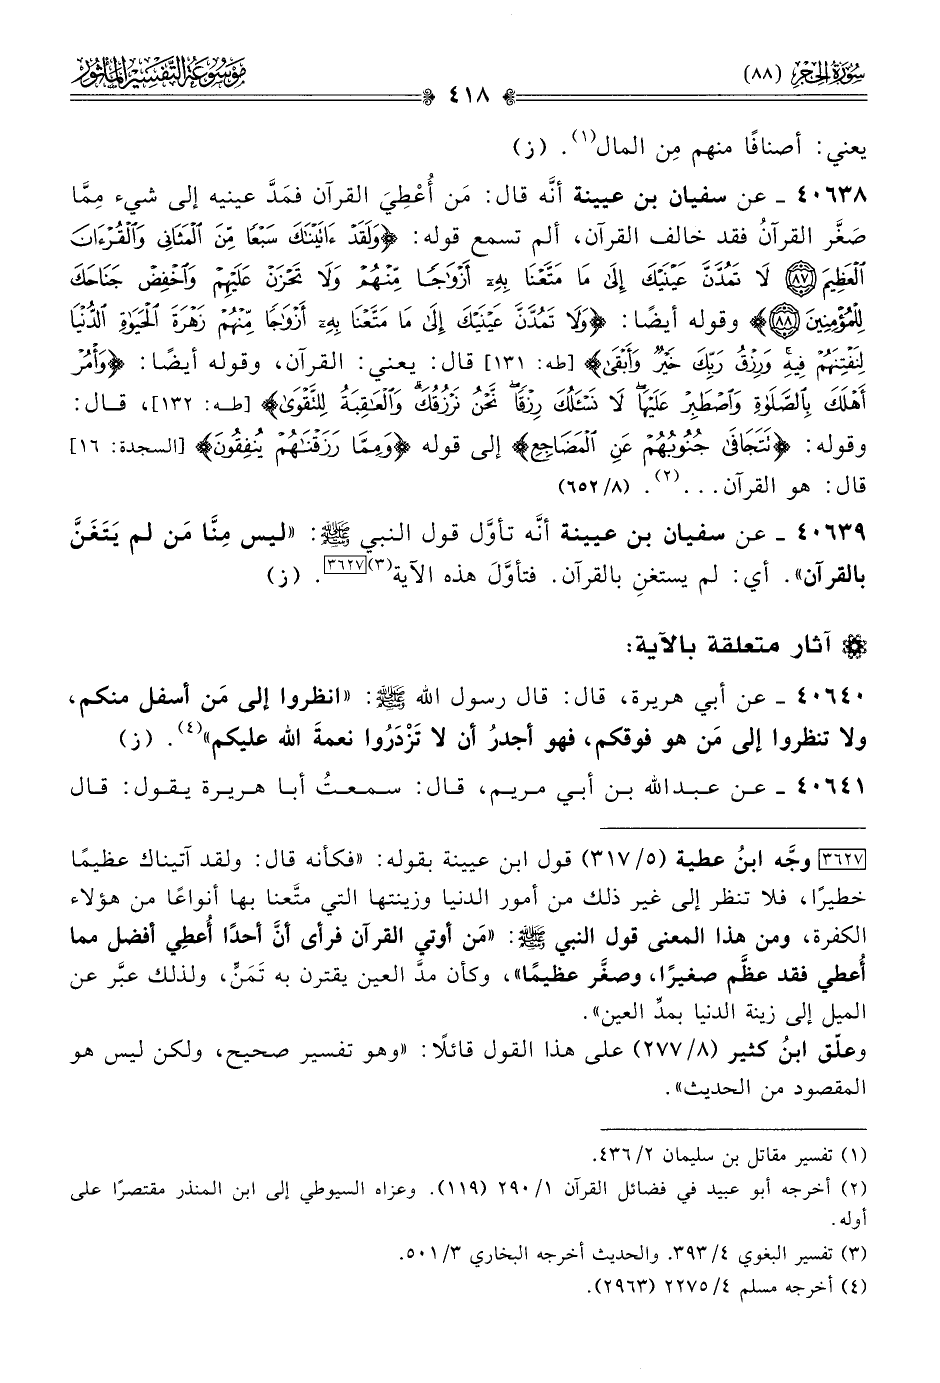 سورة الحجر (٨٨)
موسوعة التفسير المأثور
٤١٨
يعني: أصنافًا منهم مِن المال(١). (ز)
٤٠٦٣٨ ـ عن سفيان بن عيينة أنَّه قال: مَن أُعْطِيَ القرآن فمَدَّ عينيه إلى شيء مِمَّا
صَغَّر القرآنُ فقد خالف القرآن، ألم تسمع قوله: ﴿وَلَقَدْ ءَاتَيْنَٰكَ سَبْعًا مِّنَ ٱلْمَثَانِى وَٱلْقُرْءَانَ
ٱلْعَظِيمَ ۝٨٧ لَا تَمُدَّنَّ عَيْنَيْكَ إِلَىٰ مَا مَتَّعْنَا بِهِۦٓ أَزْوَٰجًا مِّنْهُمْ وَلَا تَحْزَنْ عَلَيْهِمْ وَٱخْفِضْ جَنَاحَكَ
لِلْمُؤْمِنِينَ ۝٨٨﴾ وقوله أيضًا: ﴿وَلَا تَمُدَّنَّ عَيْنَيْكَ إِلَىٰ مَا مَتَّعْنَا بِهِۦٓ أَزْوَٰجًا مِّنْهُمْ زَهْرَةَ ٱلْحَيَوٰةِ ٱلدُّنْيَا
لِنَفْتِنَهُمْ فِيهِ ۚ وَرِزْقُ رَبِّكَ خَيْرٌ وَأَبْقَىٰ﴾ [طه: ١٣١] قال: يعني: القرآن، وقوله أيضًا: ﴿وَأْمُرْ
أَهْلَكَ بِٱلصَّلَوٰةِ وَٱصْطَبِرْ عَلَيْهَا ۖ لَا نَسْـَٔلُكَ رِزْقًا ۖ نَّحْنُ نَرْزُقُكَ ۗ وَٱلْعَٰقِبَةُ لِلتَّقْوَىٰ﴾ [طه: ١٣٢]، قال:
وقوله: ﴿نَتَجَافَىٰ جُنُوبُهُمْ عَنِ ٱلْمَضَاجِعِ﴾ إلى قوله ﴿وَمِمَّا رَزَقْنَٰهُمْ يُنفِقُونَ﴾ [السجدة: ١٦]
قال: هو القرآن...(٢). (٦٥٢/٨)
٤٠٦٣٩ ـ عن سفيان بن عيينة أنَّه تأوَّل قول النبي ﷺ: «ليس مِنَّا مَن لم يَتَغَنَّ
بالقرآن». أي: لم يستغنِ بالقرآن. فتأوَّلَ هذه الآية(٣)[٣٦٢٧]. (ز)
آثار متعلقة بالآية:
٤٠٦٤٠ ـ عن أبي هريرة، قال: قال رسول الله ﷺ: «انظروا إلى مَن أسفل منكم،
ولا تنظروا إلى مَن هو فوقكم، فهو أجدرُ أن لا تَزْدَرُوا نعمةَ الله عليكم»(٤). (ز)
٤٠٦٤١ ـ عن عبدالله بن أبي مريم، قال: سمعتُ أبا هريرة يقول: قال
[٣٦٢٧] وجَّه ابنُ عطية (٣١٧/٥) قول ابن عيينة بقوله: «فكأنه قال: ولقد آتيناك عظيمًا
خطيرًا، فلا تنظر إلى غير ذلك من أمور الدنيا وزينتها التي متَّعنا بها أنواعًا من هؤلاء
الكفرة، ومن هذا المعنى قول النبي ﷺ: «مَن أوتي القرآن فرأى أنَّ أحدًا أُعطِي أفضل مما
أُعطي فقد عظَّم صغيرًا، وصغَّر عظيمًا»، وكأن مدَّ العين يقترن به تَمَنٍّ، ولذلك عبَّر عن
الميل إلى زينة الدنيا بمدِّ العين».
وعلّق ابنُ كثير (٢٧٧/٨) على هذا القول قائلًا: «وهو تفسير صحيح، ولكن ليس هو
المقصود من الحديث».
(١) تفسير مقاتل بن سليمان ٤٣٦/٢.
(٢) أخرجه أبو عبيد في فضائل القرآن ٢٩٠/١ (١١٩). وعزاه السيوطي إلى ابن المنذر مقتصرًا على
أوله.
(٣) تفسير البغوي ٣٩٣/٤. والحديث أخرجه البخاري ٥٠١/٣.
(٤) أخرجه مسلم ٢٢٧٥/٤ (٢٩٦٣).